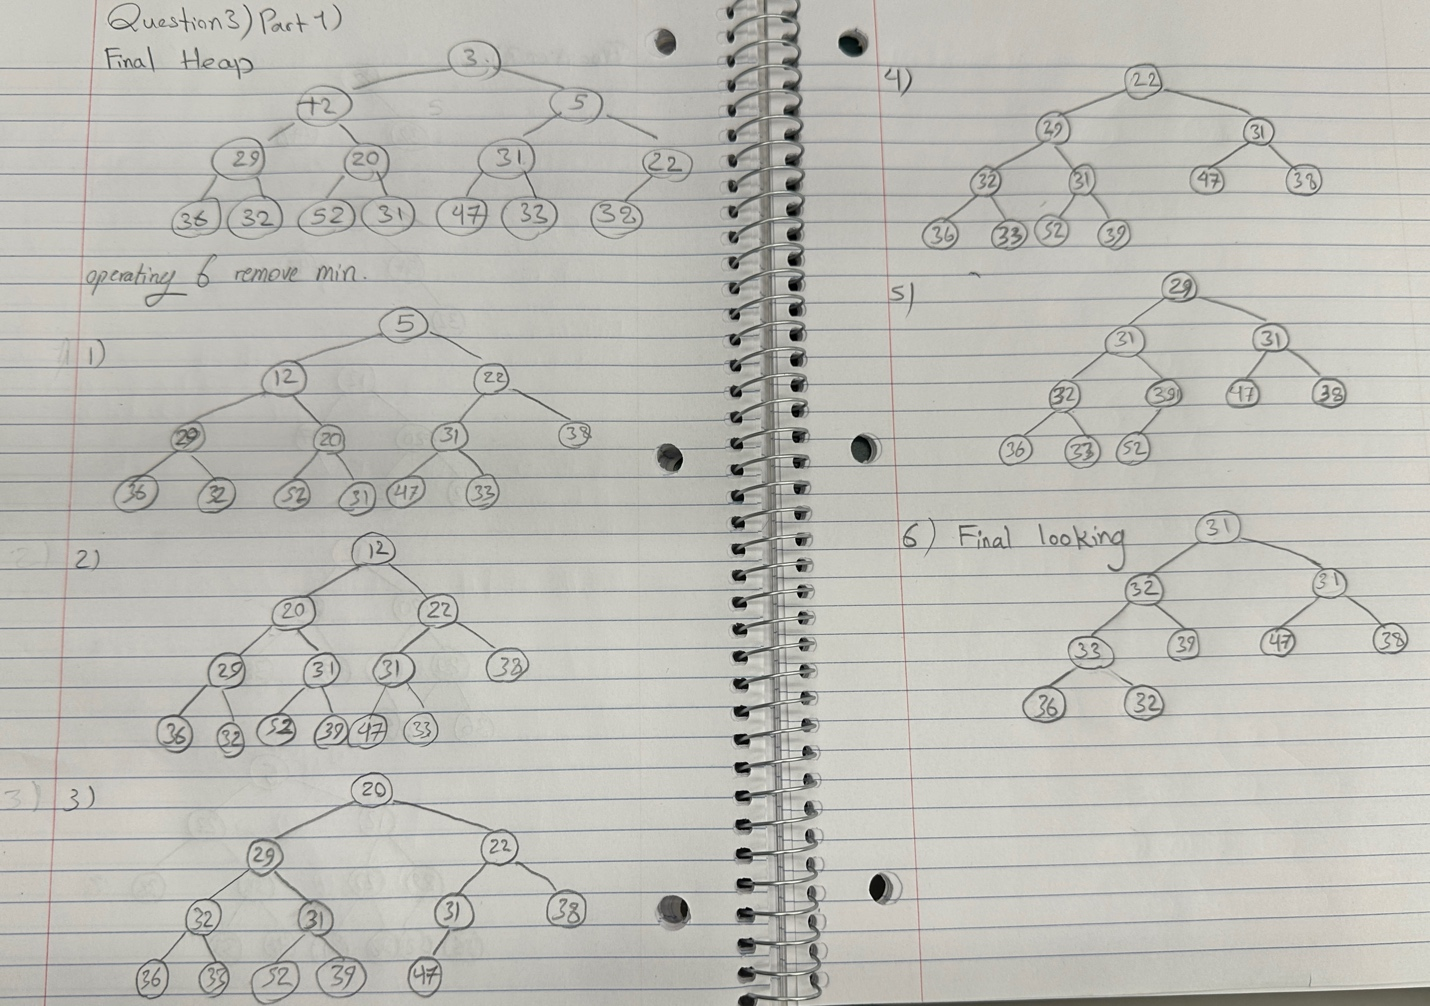 Question 3) Part 1)
Final Heap
3
12 5
29 20 31 22
36 32 52 31 47 33 38
operating 6 remove min.
1)
5
12 22
29 20 31 38
36 32 52 31 47 33
2)
12
20 22
29 31 31 38
36 32 52 39 47 33
3) 3)
20
29 22
32 31 31 38
36 33 52 39 47
4)
22
29 31
32 31 47 38
36 33 52 39
5)
29
31 31
32 39 47 38
36 33 52
6) Final looking
31
32 31
33 39 47 38
36 32